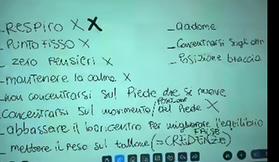 - RESPIRO X X
- PUNTO FISSO X
- zero Pensieri X
- mantenere la calma X
- non concentrarsi sul Piede che si muove
- concentrarsi sul movimento/ del Piede X
POSIZIONE
- abbassare il baricentro per migliorare l'equilibrio
- mettere il peso sul tallone (= CREDENZE)
FALSE
- addome
- Concentrarsi sugli altri
- Posizione braccia